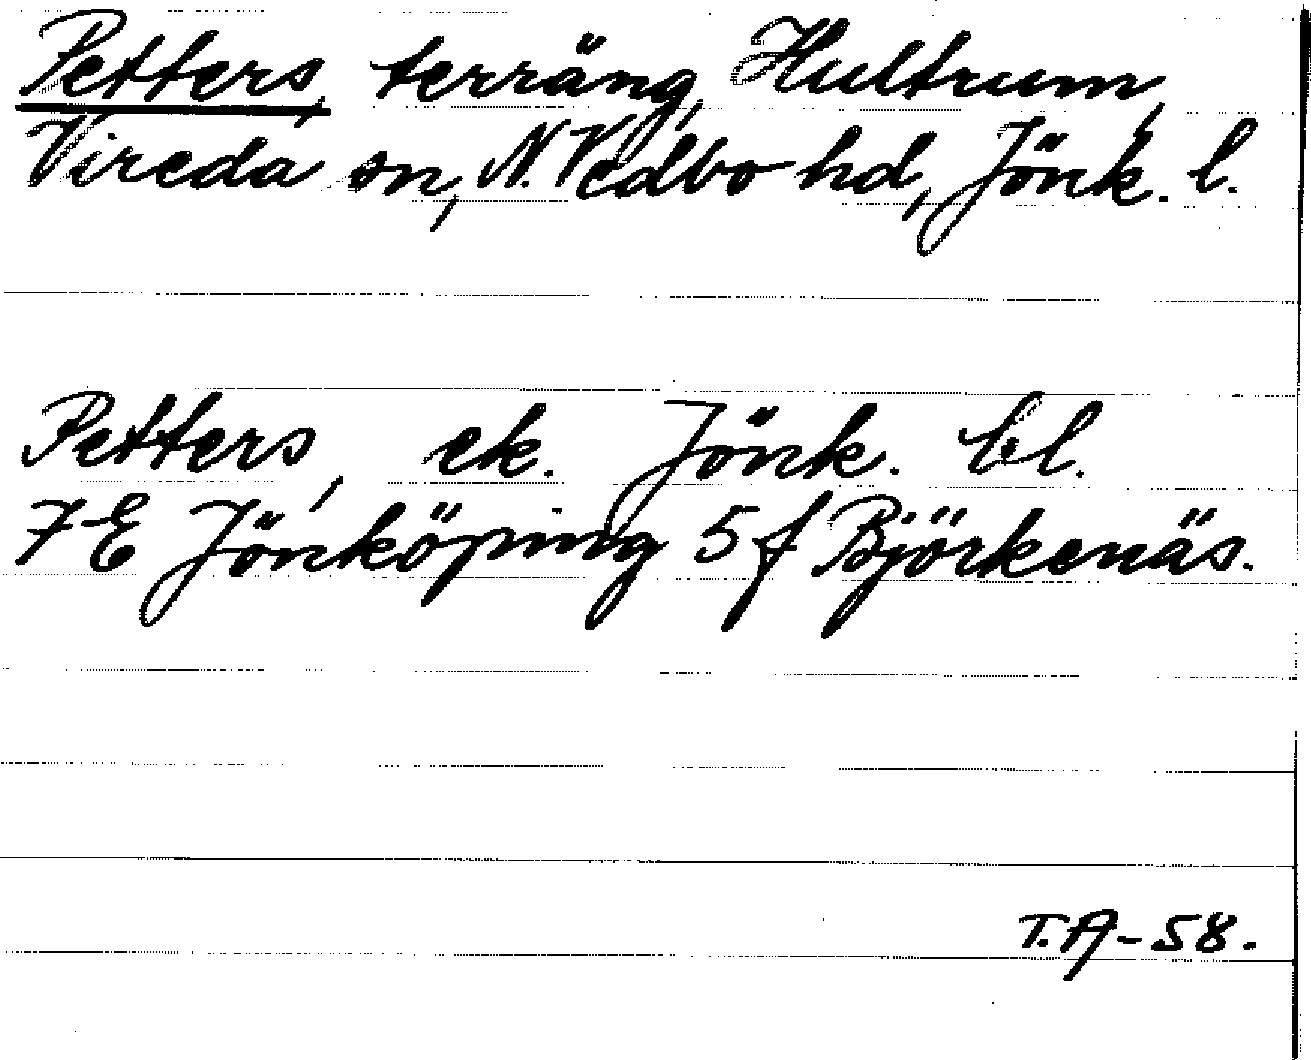 Petters, terräng, Hultrum,
Vireda sn, N. Vedbo hd, Jönk. l.
Petters, ek. Jönk. bl.
7 E Jönköping 5 f Björkenäs.
T.A-58.